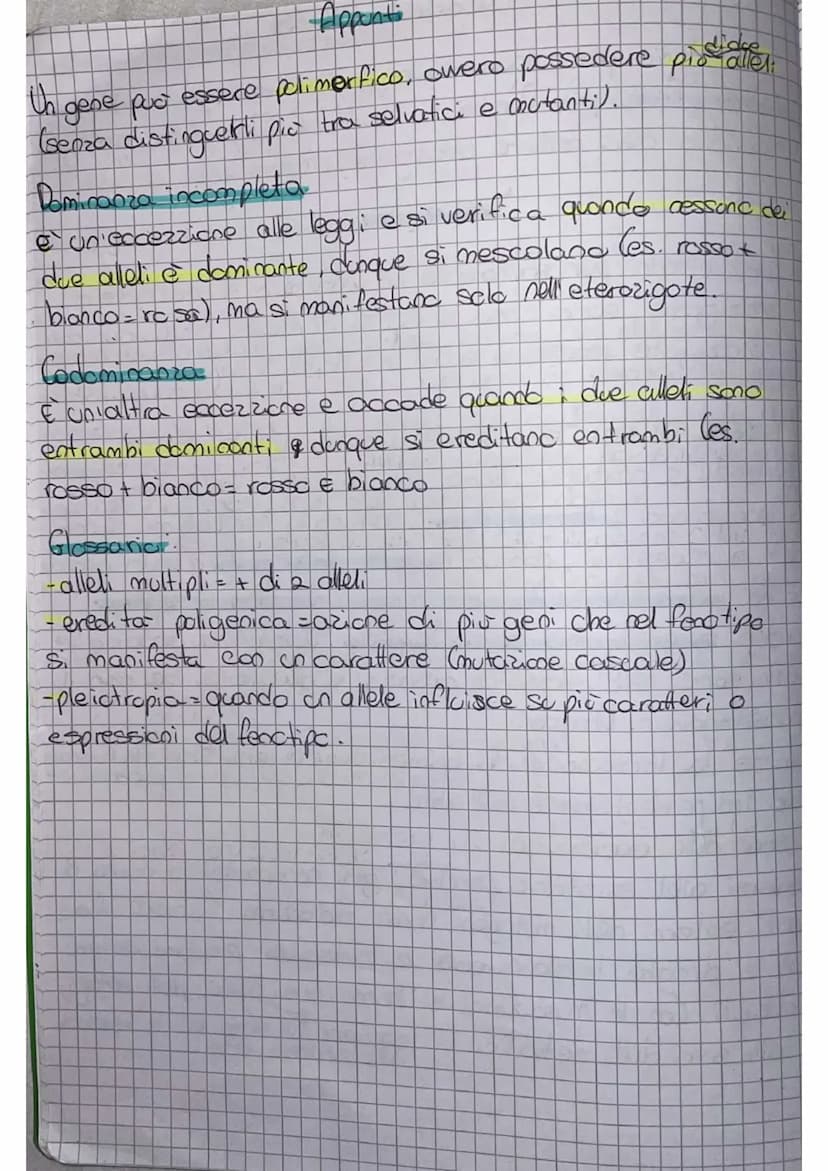 Appunti
Un gene può essere polimorfico, ovvero possedere più alleli
(senza distinguerli più tra selvatici e mutanti).
Dominanza incompleta
è un'eccezzione alle leggi e si verifica quando nessuno dei
due alleli è dominante, dunque si mescolano (es. rosso +
bianco = rosa), ma si manifestano solo nell'eterozigote.
Codominanza
È un'altra eccezzione e accade quando i due alleli sono
entrambi dominanti e dunque si ereditano entrambi (es.
rosso + bianco = rosso e bianco
Glossario:
-alleli multipli = + di 2 alleli
-eredità poligenica = azione di più geni che nel fenotipo
si manifesta con un carattere (mutazione casuale)
-pleiotropia = quando un allele influisce su più caratteri o
espressioni del fenotipo.